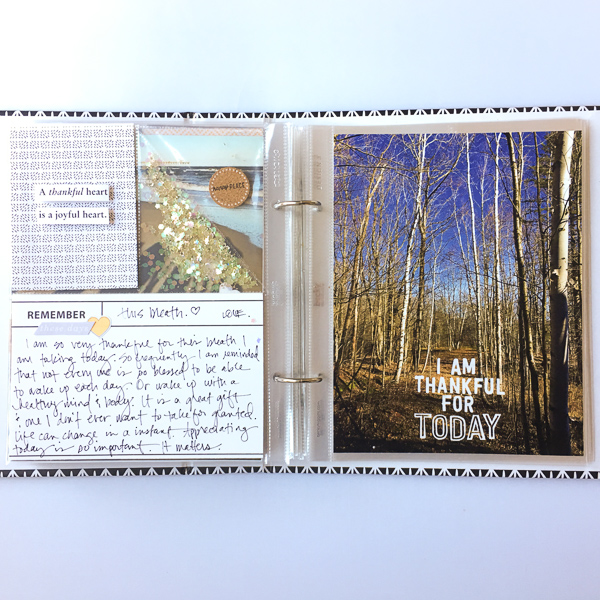 A thankful heart
is a joyful heart.
happy PLACE
REMEMBER this breath. ♡
I am so very thankful for this breath I
am taking today. So frequently I am reminded
that not every one is so blessed to be able
to wake up each day. Or wake up with a
healthy mind & body. It is a great gift
& one I don't ever want to take for granted.
Life can change in a instant. Appreciating
today is so important. It matters.
I AM
THANKFUL
FOR
TODAY